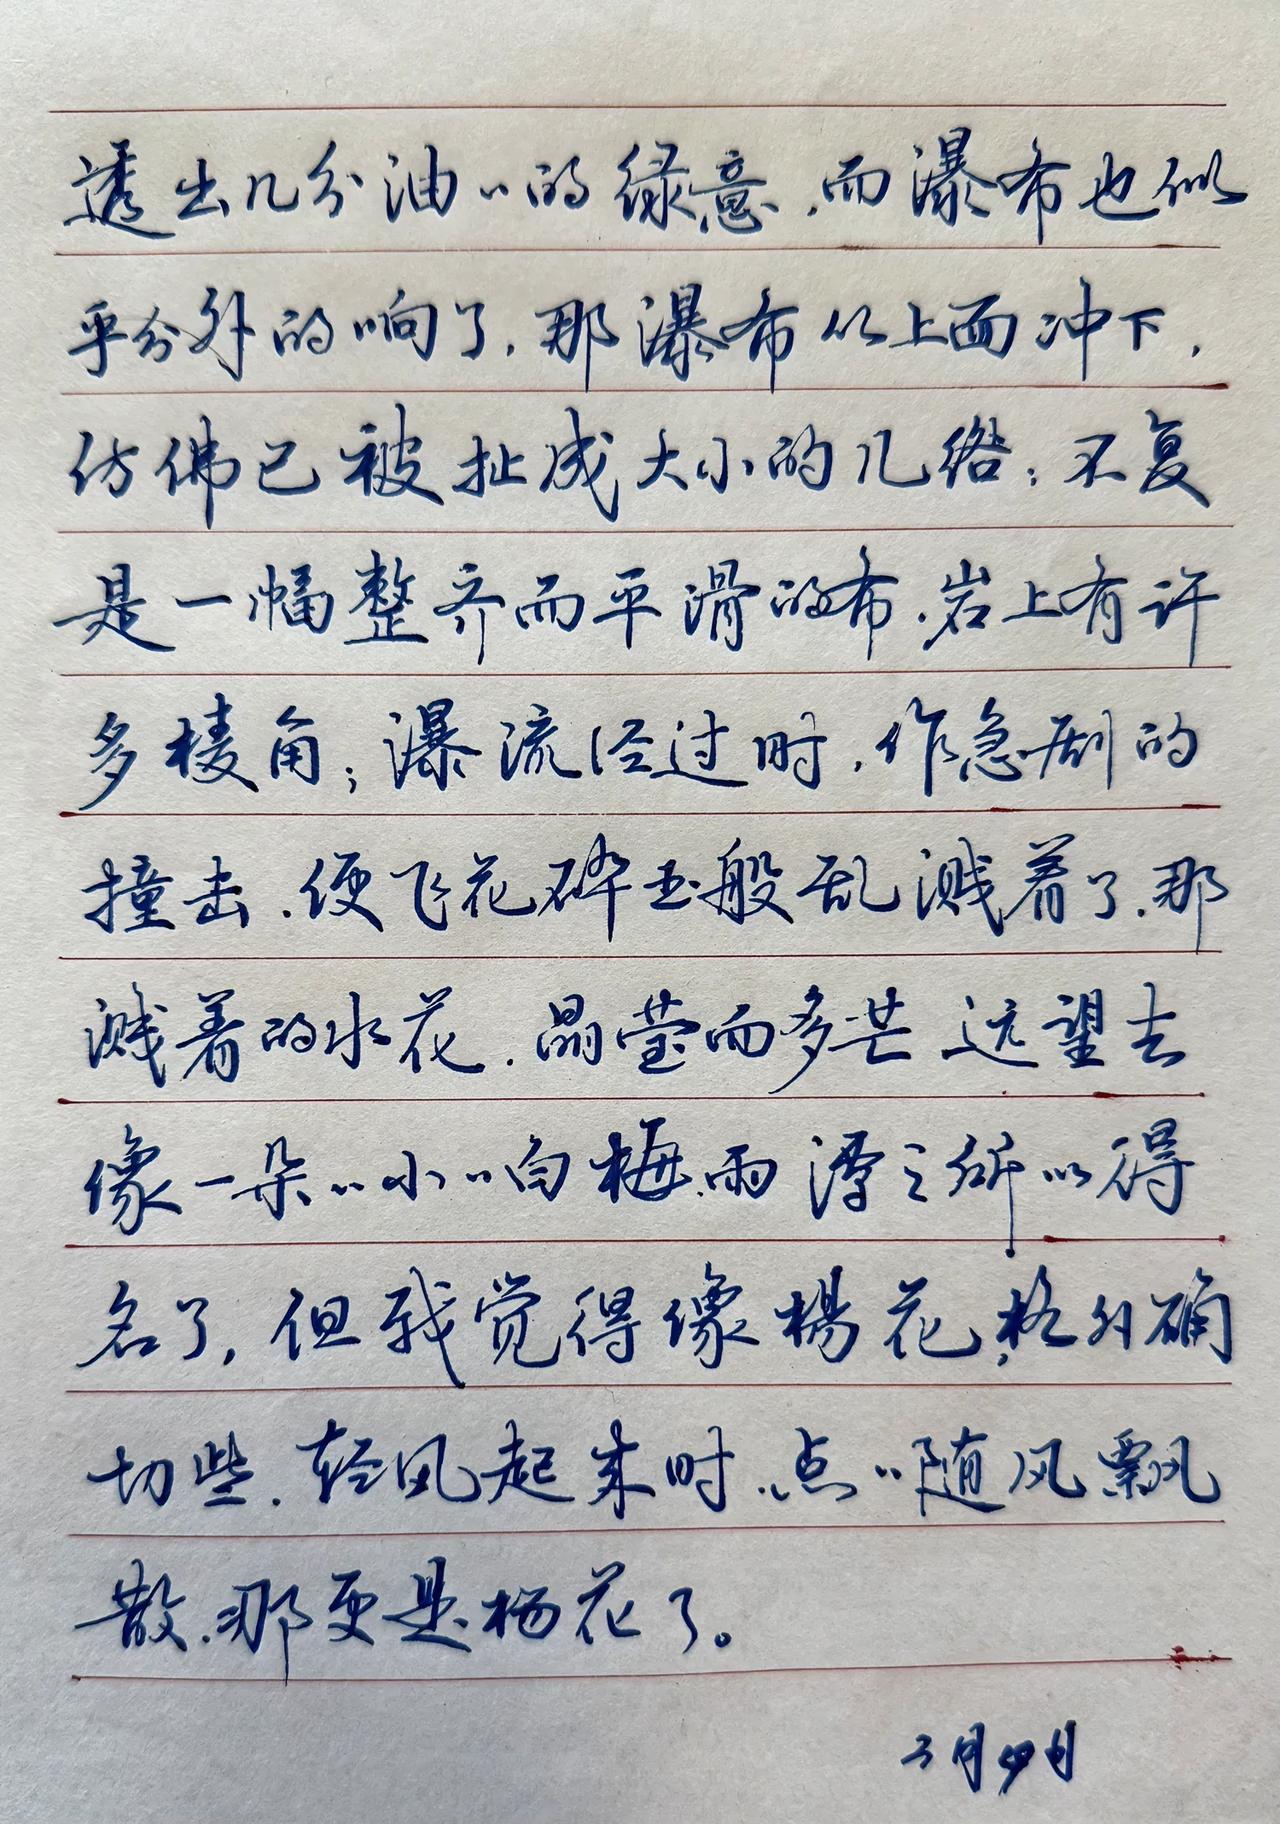 透出几分油〃的绿意，而瀑布也似
乎分外的响了，那瀑布从上面冲下，
仿佛已被扯成大小的几绺；不复
是一幅整齐而平滑的布，岩上有许
多棱角；瀑流经过时，作急剧的
撞击，便飞花碎玉般乱溅着了，那
溅着的水花，晶莹而多芒 远望去
像一朵〃小〃白梅，雨潭之所以得
名了，但我觉得像楊花，格外确
切些，轻风起来时，点〃随风飘
散，那更是杨花了。